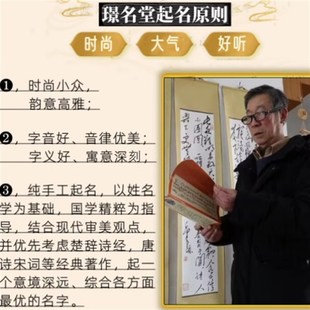 璟名堂起名原则
时尚 大气 好听
1，时尚小众，
韵意高雅；
2，字音好、音律优美；
字义好、寓意深刻；
3，纯手工起名，以姓名
学为基础，国学精粹为指
导，结合现代审美观点，
并优先考虑楚辞诗经，唐
诗宋词等经典著作，起一
个意境深远、综合各方面
最优的名字。